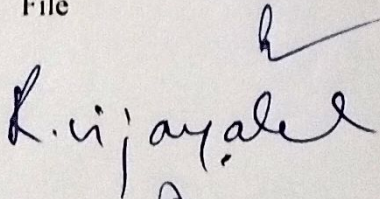 File
R. vijayalal